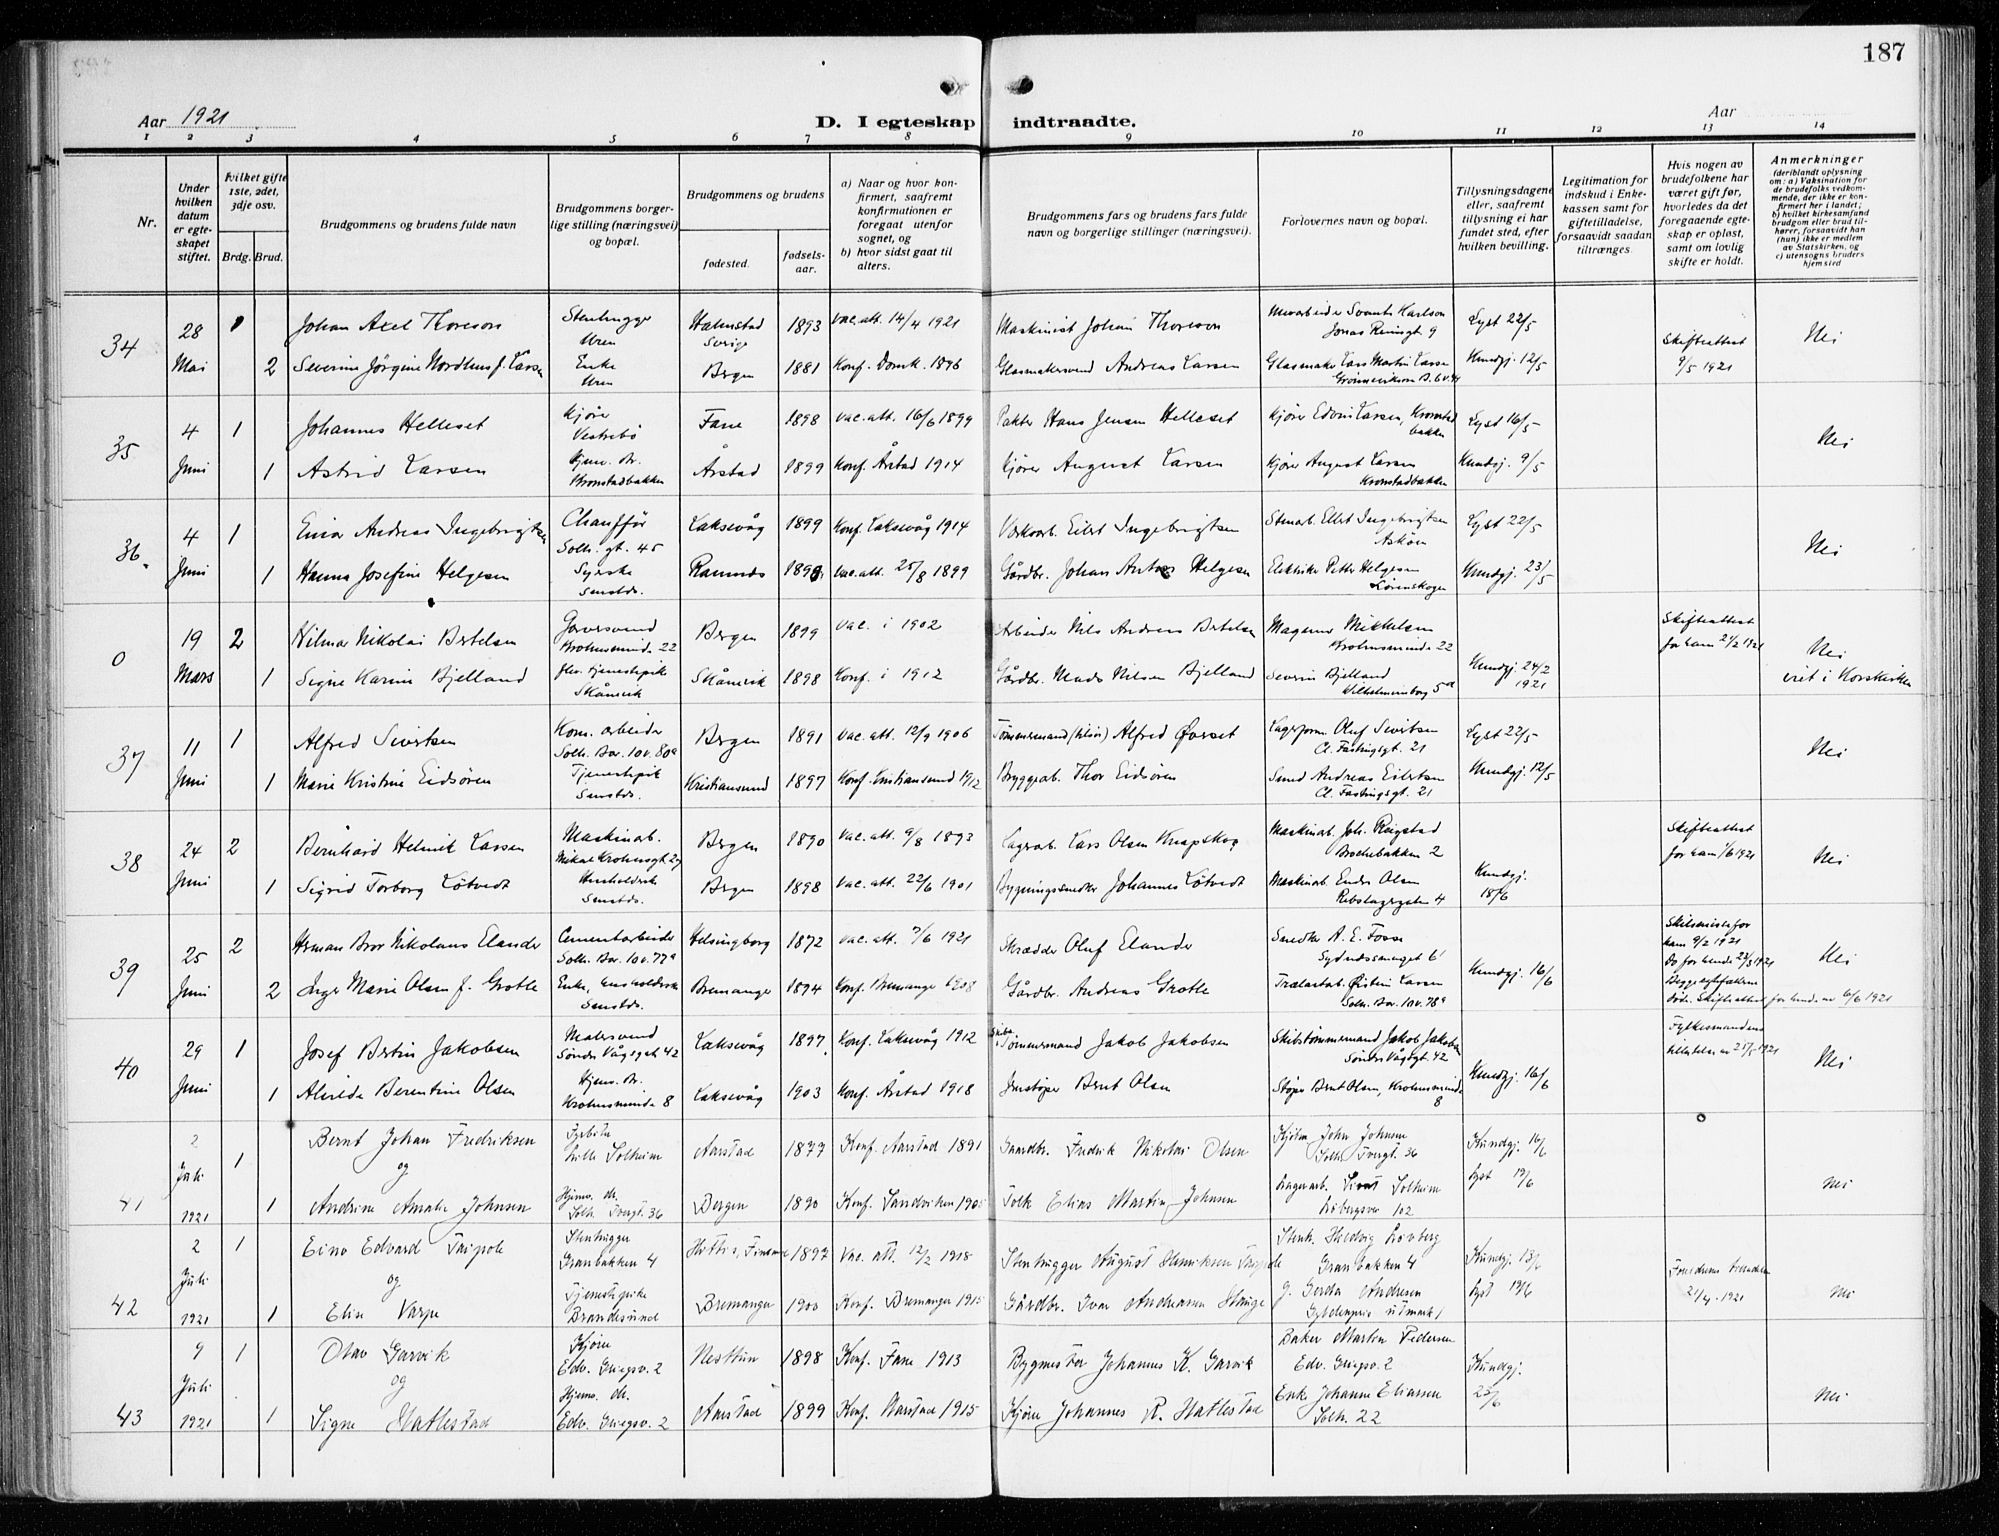 187
Aar 1921
D. I egteskap indtraadte.
Aar
1 2 3 4 5 6 7 8 9 10 11 12 13 14
Nr.
Under hvilken datum er egteskapet stiftet.
Hvilket gifte 1ste, 2det, 3dje osv.
Brdg. Brud.
Brudgommens og brudens fulde navn
Brudgommens borgerlige stilling (næringsvei) og bopæl.
Brudgommens og brudens
fødested.
fødselsaar.
a) Naar og hvor konfirmert, saafremt konfirmationen er foregaat utenfor sognet, og
b) hvor sidst gaat til alters.
Brudgommens fars og brudens fars fulde navn og borgerlige stillinger (næringsvei).
Forlovernes navn og bopæl.
Tillysningsdagene eller, saafremt tillysning ei har fundet sted, efter hvilken bevilling.
Legitimation for indskud i Enkekassen samt for giftetilladelse, forsaavidt saadan tiltrænges.
Hvis nogen av brudefolkene har været gift før, hvorledes da det foregaaende egteskap er opløst, samt om lovlig skifte er holdt.
Anmerkninger (deriblandt oplysning om: a) Vaksination for de brudefolks vedkommende, der ikke er konfirmert her i landet; b) hvilket kirkesamfund brudgom eller brud tilhører, forsaavidt han (hun) ikke er medlem av Statskirken, og c) utensogns bruders hjemsted
34 28 Mai
Johan Axel Thoreson Stenhugger Uren Halmstad Sverige 1893 vac. att. 14/4 1921 Maskinist Johan Thoreson Murarbeider Svante Karlson Lyst 22/5
2 Severine Jørgine Nordhus f. Larsen Enke Uren Bergen 1881 Konf. Domk. 1896 Glasmakersvend Andreas Larsen Glasmaker Lars Martin Larsen Kundgj. 12/5 Skifteattest 9/5 1921 Nei
35 4 Juni
1 Johannes Helleset Kjører Vestrebø Fane 1898 vac. att. 16/6 1899 Pakter Hans Jensen Helleset Kjører Edvin Larsen, Kronstadbakken Lyst 16/5
1 Astrid Larsen Hjem. dr. Kronstadbakken Årstad 1899 Konf. Årstad 1914 Kjører August Larsen Kjører August Larsen Kronstadbakken Kundgj. 9/5 Nei
36. 4 Juni
1 Einar Andreas Ingebrigtsen Chauffør Solh. gt. 45 Laksevåg 1899 Konf. Laksevåg 1914 Eilert Ingebrigtsen Stenarb. Eilert Ingebrigtsen Askøen Lyst 22/5
1 Hanna Josefine Helgesen Syerske Samstds. 1898 vac. att. 25/8 1899 Gårdbr. Johan Helgesen Elektriker Petter Helgesen Kundgj. 23/5 Nei
0 19 Mars
2 Hilmar Nikolai Bertelsen Garversvend Krohnsminde 22 Bergen 1899 vac. i 1902 Arbeider Nils Andreas Bertelsen Magnus Mikkelsen Krohnsminde 22 Skifteattest for ham 21/2 1921
1 Signe Karine Bjelland Skånevik Skånevik 1898 Konf. i 1912 Gårdbr. Mads Nilsen Bjelland Severin Bjelland Wilhelmineborg 5a Kundgj. 24/2 1921 Nei viet i Korskirken
37 11 Juni
1 Alfred Sivertsen Kom. arbeider Solh. Bar. 10 v. 80a Bergen 1891 vac. att. 12/9 1906 Tømmermand Alfred Øvrset Lagerform. Oluf Sivertsen Cl. Fastingsgt. 21 Lyst 22/5
1 Marie Kristine Eidsören Tjenestepik Samstds. Kristiansund 1897 Konf. Kristiansund 1912 Bryggearb. Thor Eidsören Smed Andreas Eilertsen Cl. Fastingsgt. 21 Kundgj. 12/5 Nei
38 24 Juni
2 Bernhard Helmik Larsen Maskinarb. Mikal Krohnsgt 27 Bergen 1890 vac. att. 9/8 1893 Lagerarb. Lars Olsen Knapskog Maskinarb. Joh. Reigstad 2 Skifteattest for ham 1/6 1921
1 Sigrid Torborg Løtvedt Husholderske Samstds. Bergen 1898 vac. att. 22/6 1901 Bygningssnedker Johannes Løtvedt Maskinarb. Endre Olsen Rebslagergaten 4 Kundgj. 18/6 Nei
39 25 Juni
2 Herman Bror Nikolaus Elander Cementarbeider Solh. Bar. 10 v. 77a Helsingborg 1872 vac. att. 7/6 1921 Skrædder Oluf Elander Snedker A. E. Fosse Sydnessmuget 6 Skilsmisse for ham 9/2 1921
2 Inger Marie Olsen f. Grotle Enke, husholderske Samstds. Bremanger 1894 Konf. Bremanger 1908 Gårdbr. Andreas Grotle Trælastarb. Øistein Larsen Solh. Bar. 10 v. 78a Kundgj. 16/6 Do for hende 23/5 1921 Skifteattest for hende 6/6 1921 Nei
40 29 Juni
1 Josef Bertin Jakobsen Malersvend Søndre Vågsgt 42 Laksevåg 1897 Konf. Laksevåg 1912 Skibstømmermand Jakob Jakobsen Skibstømmermand Jakob Jakobsen Søndre Vågsgt. 42 Fylkesmandens tilladelse 25/5 1921
1 Alvilde Berentine Olsen Hjem. dr. Krohnsminde 8 Laksevåg 1903 Konf. Årstad 1918 Jernstøper Bernt Olsen Støper Bernt Olsen, Krohnsminde 8 Kundgj. 16/6 Nei
41 2 Juli 1921
1 Bernt Johan Fredriksen Fyrbøter Lille Solheim Aarstad 1877 Konf. Aarstad 1891 Gaardbr. Fredrik Nikolai Olsen John Johnsen Solh. Tvergt. 36 Kundgj. 16/6
og
1 Andrine Amalie Johnsen Hjemv. dr. Solh. Tvergt. 36 Bergen 1890 Konf. Sandviken 1905 Tolk Elias Martin Johnsen Lagerarb. Sivert Solheim 102 Lyst 19/6 nei
42 2 Juli 1921
1 Eino Edvard Taipole Stenhugger Granbakken 4 1897 Vac. att. 12/2 1918 Stenhugger August Henriksen Taipole Stenh. Hedvig Lövberg Granbakken 4 Kundgj. 13/6
og
1 Elin Varpe Tjenestepike Brandesund Bremanger 1900 Konf. Bremanger 1915 Gårdbr. Ivar Andreasen Hauge Gerda Andresen Lyst 19/6 21/4 1921 nei
43 9 Juli 1921
1 Olav Garvik Kjører Edv. Griegsv. 2 Nesttun 1898 Konf. Fane 1913 Bygmester Johannes K. Garvik Baker Martin Pedersen Edv. Griegsv. 2 Kundgj.
og
1 Signe Hatlestad Hjemv. dr. Edv. Griegsv. 2 Aarstad 1899 Konf. Aarstad 1915 Kjører Johannes R. Hatlestad Enke Johanne Eliassen Solh. 22 23/6 nei